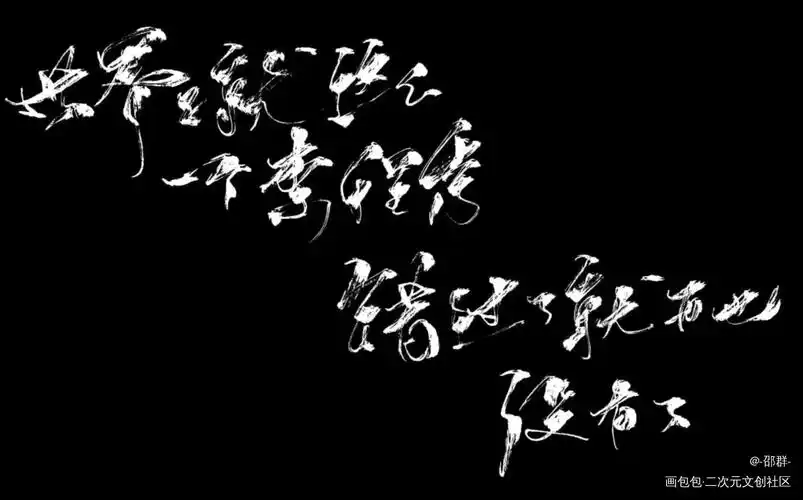 世界上就这么
一个李程秀
错过了就再也
没有了
@-邵群-
画包包·二次元文创社区